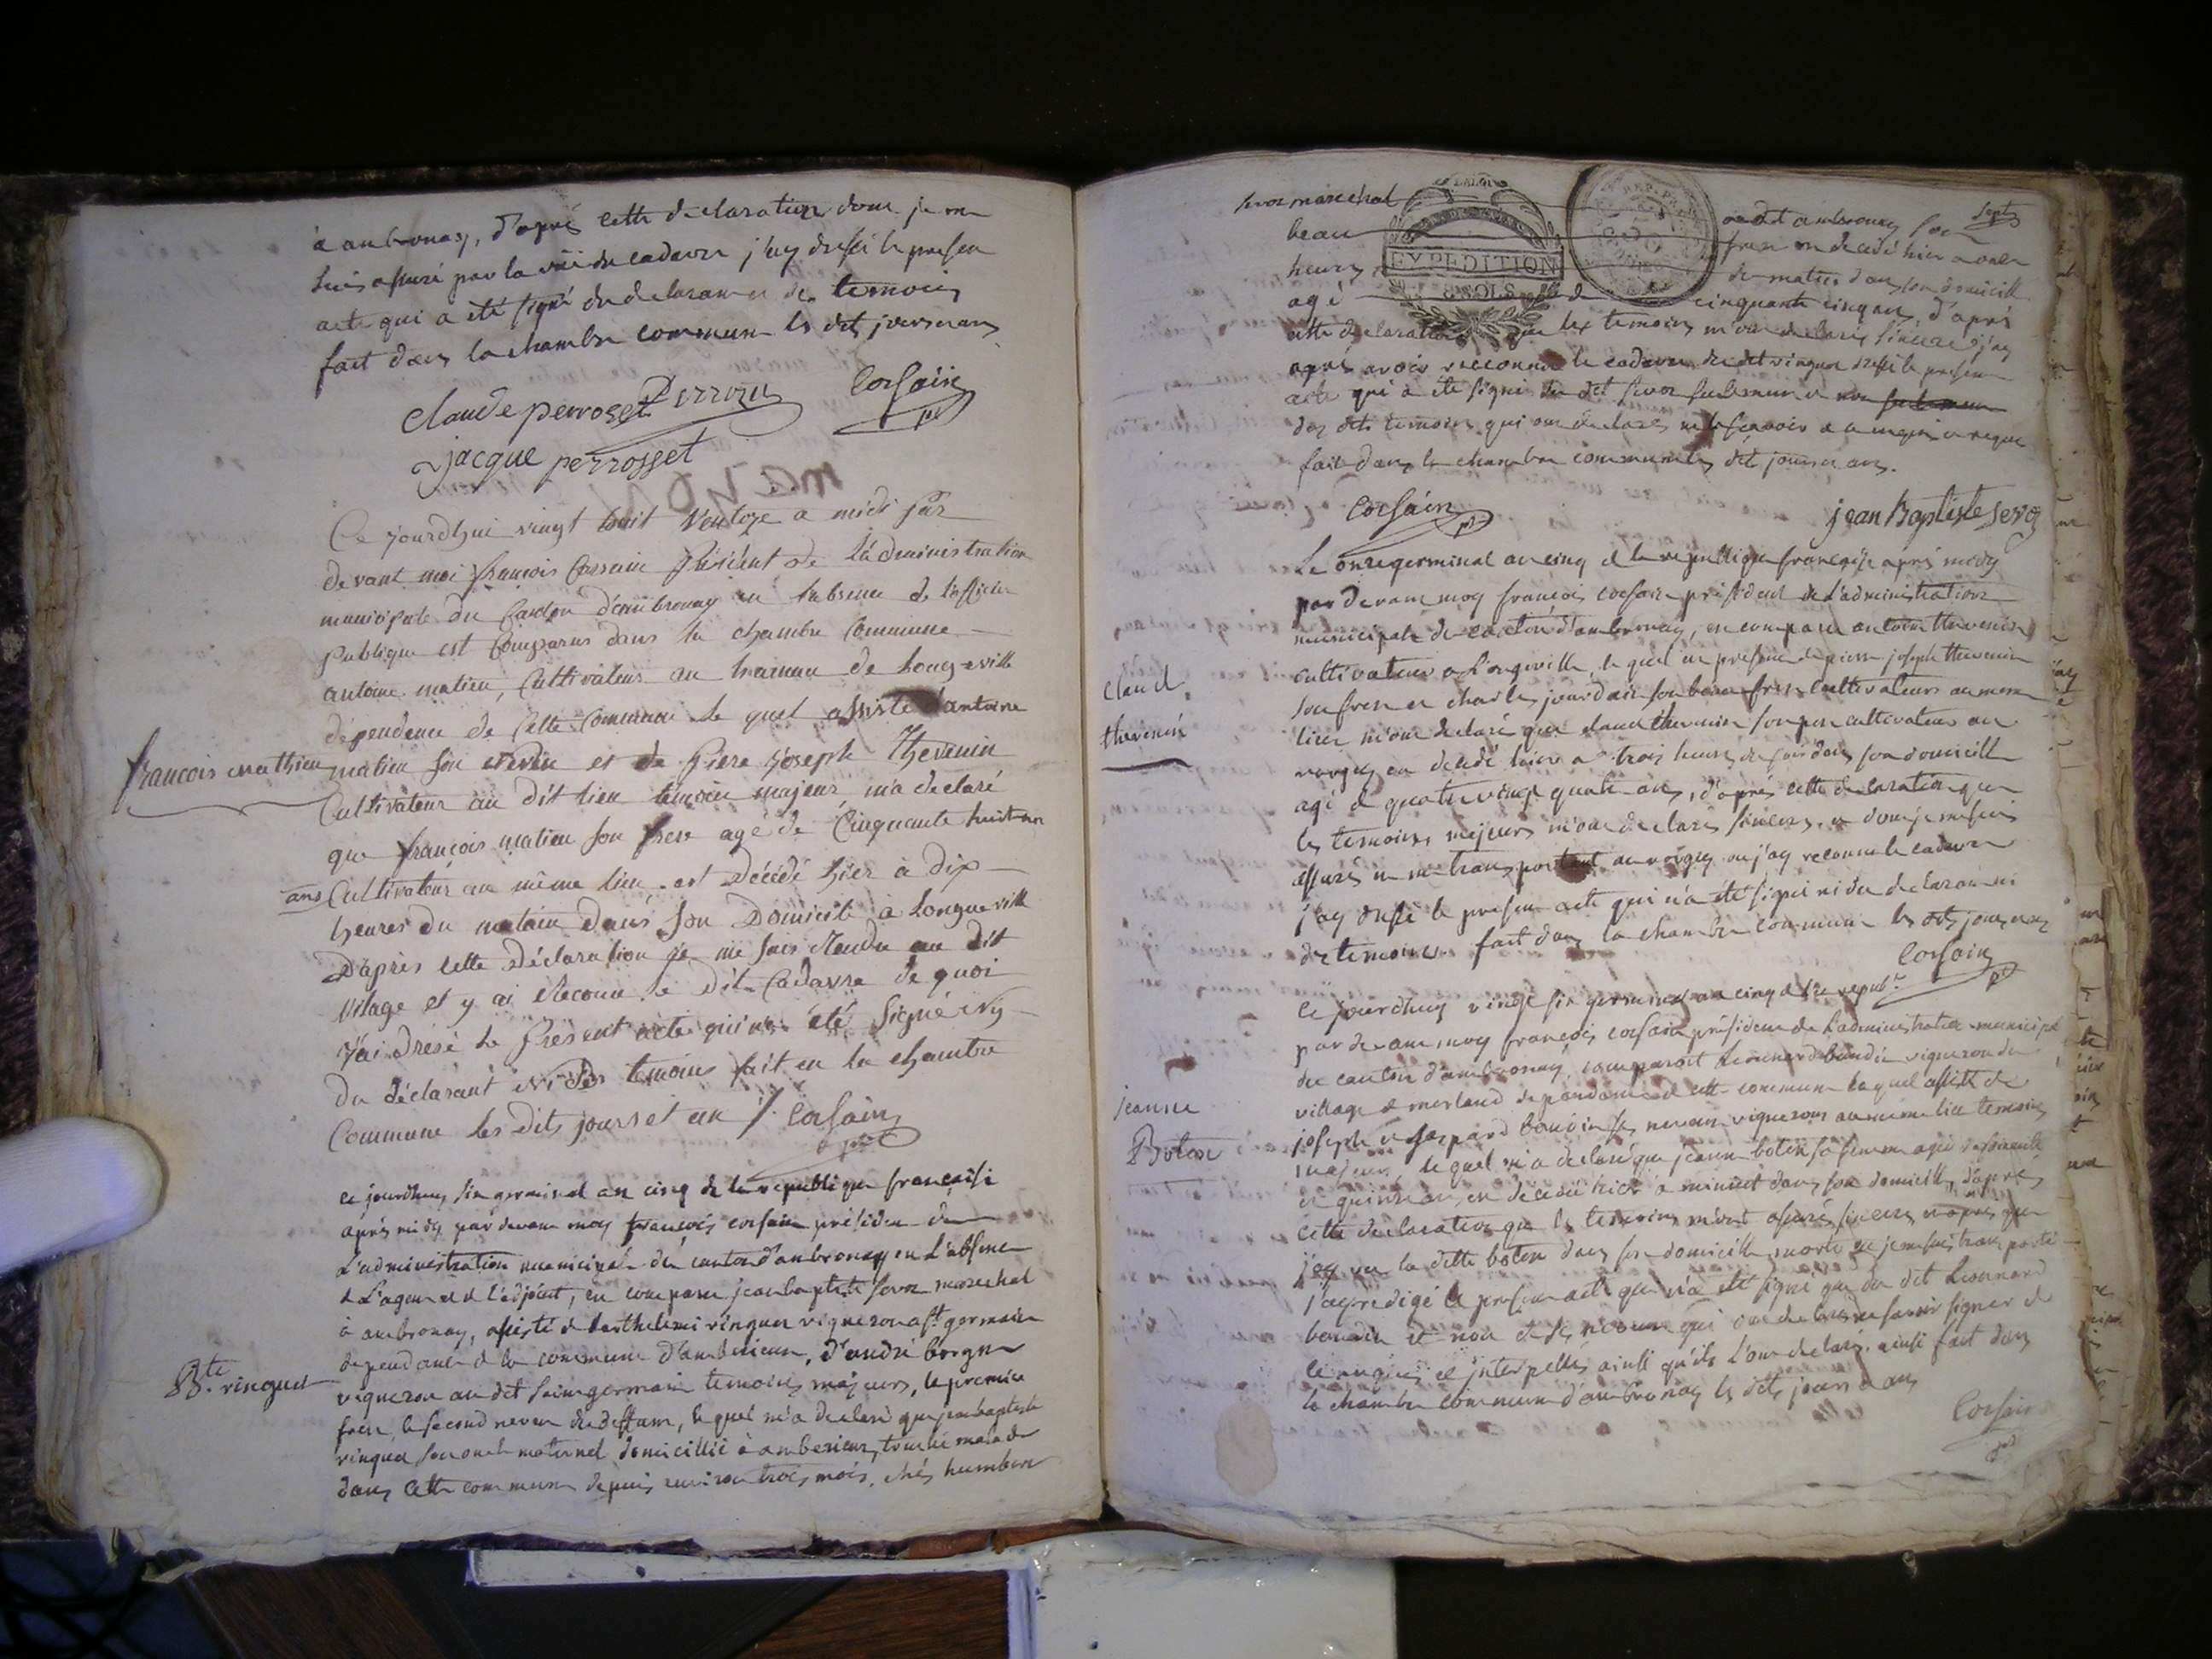 à ambronay, d'aprés cette declaration dont je me
suis assuré par la vüe du cadavre j'ay dressé le present
acte qui a été signé du declarant et des temoins
fait dans la chambre commune les dits jour et an
claude perroset Perrozet Corsain pdt
jacque perrosset
Ce jourdhui vingt huit Ventoze a midi Par
devant moi francois Corsain Président de Ládministration
municipale du Canton d'ambronay en labsence de lofficier
publique est Comparus dans la chambre Commune
antoine matieu, Cultivateur au hameau de Longeville
dépendence de Cette Commune le quel assisté d'antoine
françois mathieu
matieu son neveu et de Piere Joseph Thevenin
Cultivateur au dit lieu temoin majeur m'a déclaré
que françois matieu son frere agé de Cinquante huit
ans Cultivateur au même lieu est Décédé hier à dix
heures du matin dans son Domicile à Longeville
D'après cette Déclaration je me suis Rendu au dit
Vilage et y ai Reconu le Dit Cadavre de quoi
J'ai drésé le Présent acte qui n'a été Signé Ny
Du déclarant Ni des temoins fait en la chambre
Commune les Dits jours et an /. Corsain pdt
ce jourdhuy six germinal an cinq de la republique françaisse
aprés midy par devant moy françois corsain président de
L'administration municipale du canton d'ambronay en l'absence
de L'agent et de l'adjoint, en comparu jean baptiste servoz marechal
à ambronay, assisté de barthelemi vinguet vigneron a St germain
dependance de la commune d'amberieux, d'andré borgne
Bte. vinguet
vigneron au dit saint germain temoins majeurs, le premier
frere, le second neveu du deffunt, le quel m'a declaré que jean baptiste
vinguet son oncle maternel domicillié à amberieux, tombé malade
dans cette commune depuis environ trois mois, chés humbert
servoz marechal au dit ambronay son sept
beau frere est decedé hier a onze
heures de matin dans son domicille
agé de cinquante cinq ans, d'aprés
cette declaration que les temoins m'ont declaré sincere j'ay
aprés avoir reconnu le cadavre du dit vinguet dressé le present
acte qui a été signé du dit servoz seulement et
des dits temoins qui ont declaré ne le scavoir de ce enquis et requis
fait dans la chambre commune les dits jour et an.
Corsain pdt jean Baptiste servoz
Le onze germinal an cinq de la republique françaisse aprés midy
par devant moy françois corsain président de L'administration
municipale du canton d'ambronay, en comparu antoine thevenin
cultivateur a Longeville, le quel en presence de pierre joseph thevenin
claude
son frere et charles jourdain son beau frere cultivateurs au meme
thevenin
lieu m'ont declaré que claude thevenin son pere cultivateur au
est decedé hier a trois heures de soir dans son domicille
agé de quatre vingt quatre ans, d'aprés cette declaration que
les temoins majeurs m'ont declaré sincere, et dont je me suis
assuré en me transportant au ou j'ay reconnu le cadavre
j'ay dressé le present acte qui n'a été signé ni du declarant ni
des temoins. fait dans la chambre commune les dits jour et an
Corsain pdt
ce jourdhuy vingt six germinal an cinq de la republ.
par devant moy françois corsain président de L'administration municipale
du canton d'ambronay, comparoit Leonnard baudin vigneron du
village de merland dependance de cette commune le quel assisté de
jeanne
joseph et gaspard baudin ses neveux vignerons au meme lieu temoins
Boton
majeurs, le quel m'a declaré que jeanne boton sa femme agée de soixante
et quinze ans est décedée hier a minuit dans son domicille, d'aprés
cette declaration que les temoins m'ont assuré sincere et aprés que
j'ay vu la ditte boton dans son domicille morte ou je me suis transporté
j'ay redigé le present acte qui n'a été signé que du dit Leonnard
baudin et non de ses neveux qui ont declaré ne savoir signer de
ce enquis et interpellés ainsi qu'ils l'ont declaré. ainsi fait dans
la chambre commune d'ambronay les dits jour et an
Corsain pdt
LA LOI
EXPEDITION
8 SOLS
REP. FRA